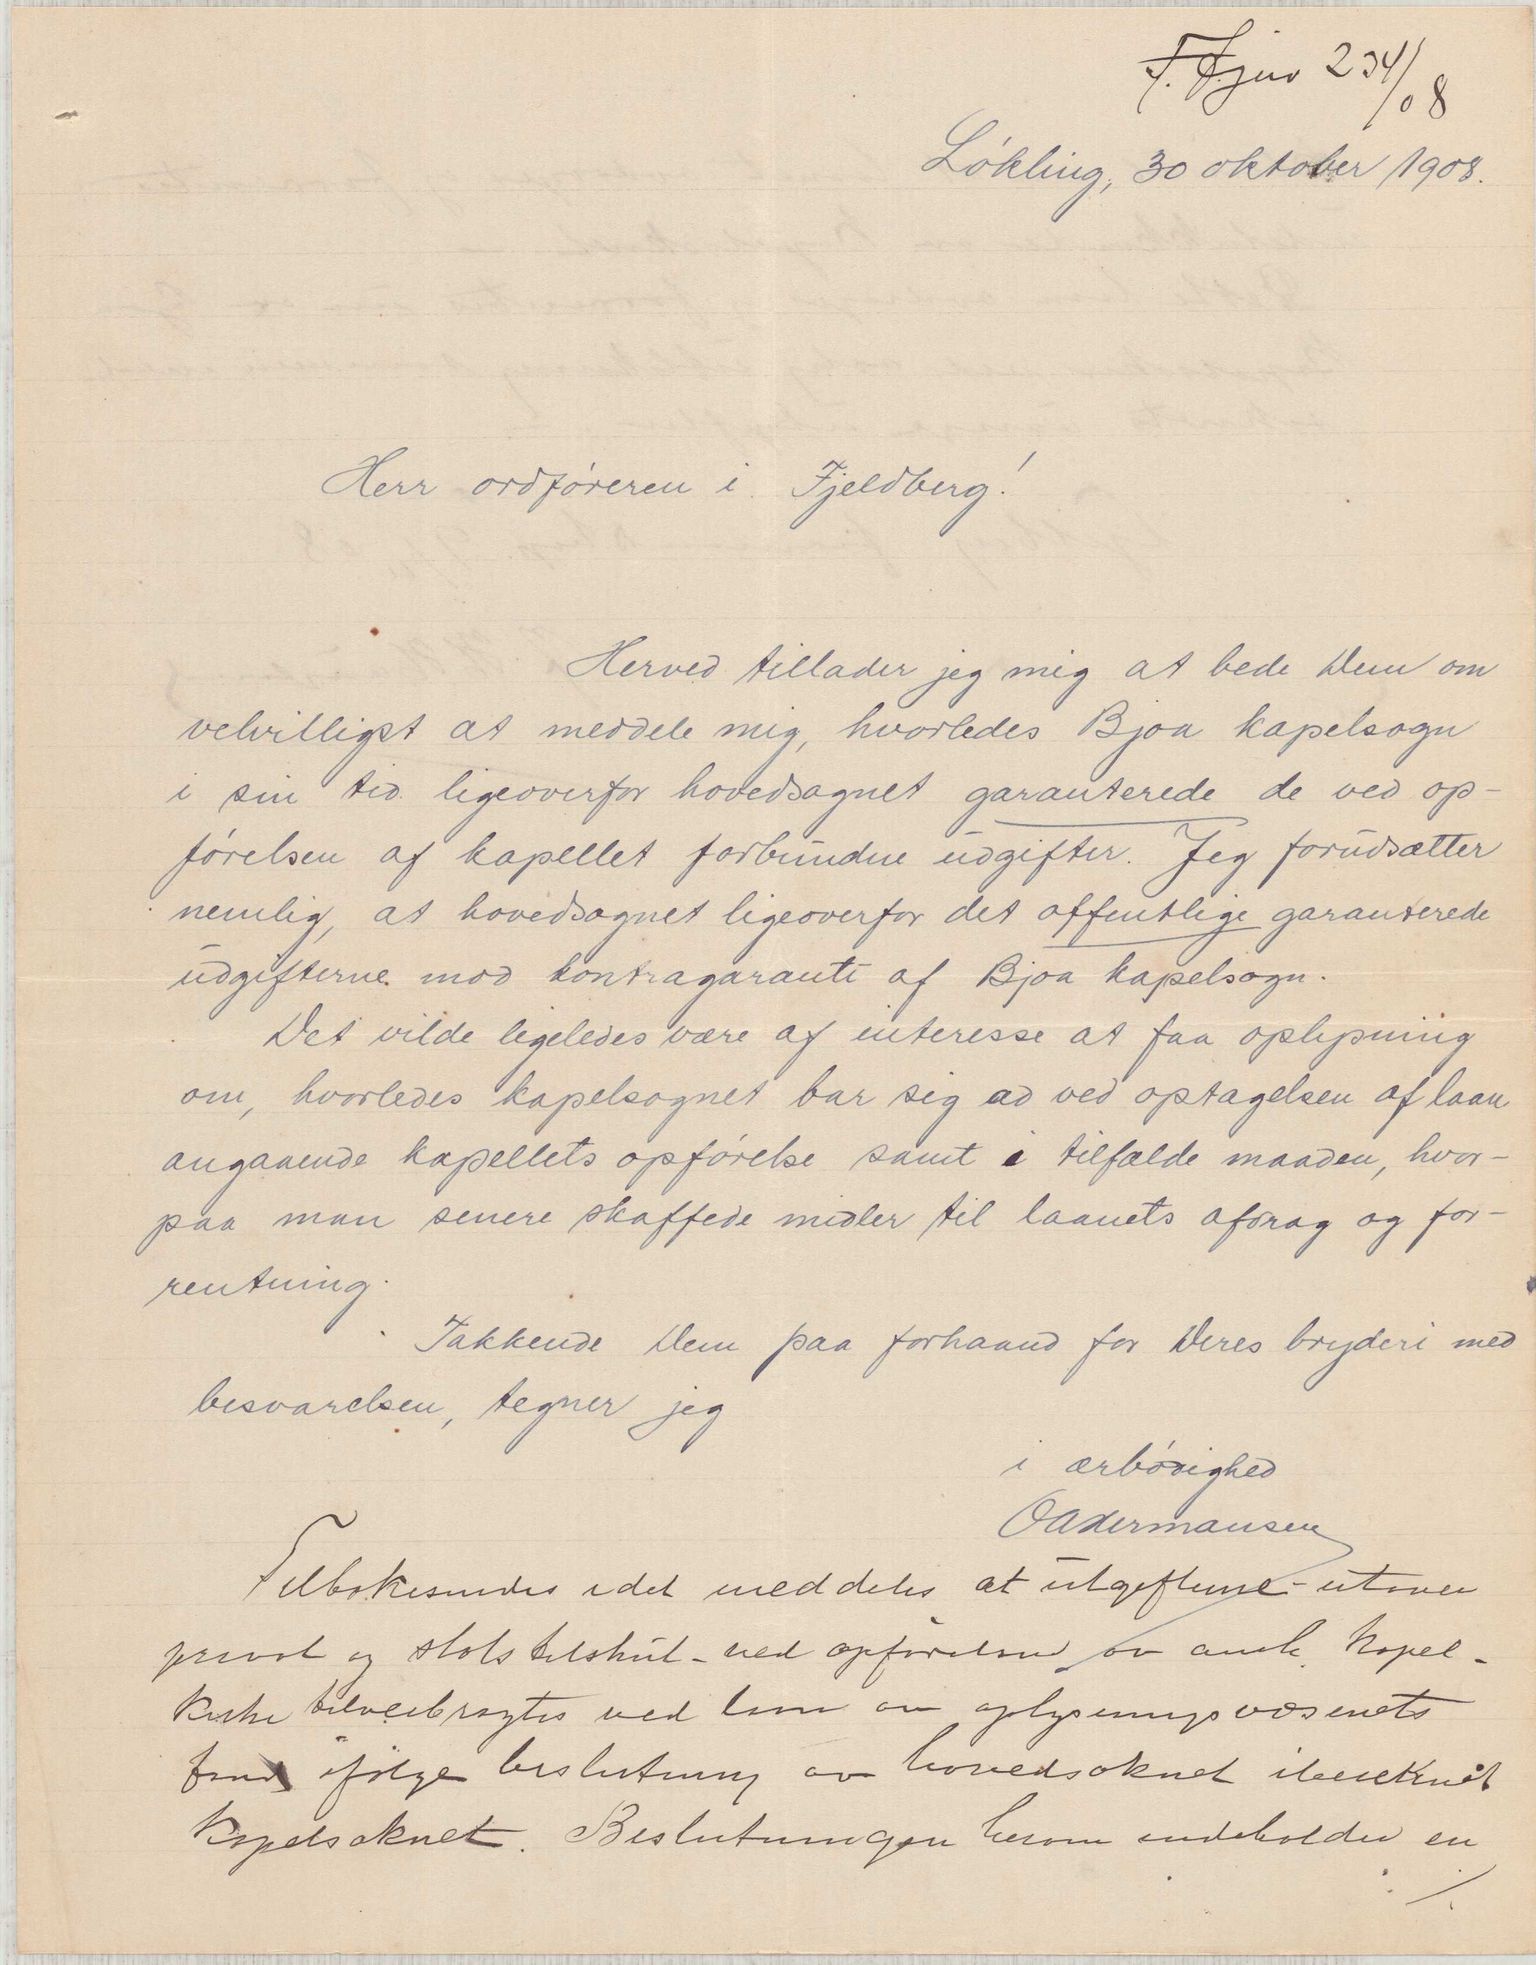 F. Fjur 234/08
Løkling, 30 oktober 1908.
Herr ordføreren i Fjeldberg!
Herved tillader jeg mig at bede Dem om
velvilligst at meddele mig, hvorledes Bjoa kapelsogn
i sin tid ligeoverfor hovedsognet garanterede de ved op-
førelsen af kapellet forbundne udgifter. Jeg forudsætter
nemlig, at hovedsognet ligeoverfor det offentlige garanterede
udgifterne mod kontragaranti af Bjoa kapelsogn.
Det vilde ligeledes være af interesse at faa oplysning
om, hvorledes kapelsognet bar sig ad ved optagelsen af laan
angaaende kapellets opførelse samt i tilfælde maaden, hvor-
paa man senere skaffede midler til laanets afdrag og for-
rentning.
Takkende Dem paa forhaand for Deres bryderi med
besvarelsen, tegner jeg
i ærbødighed
Tilbakesendes idet meddeles at utgifterne - utover
privat og statstilskut - ved opførelsen av kapel-
kirke tilveiebragtes ved laan av oplysningsvæsenets
fond ifølge beslutning av hovedsoknet iberegnet
kapelsoknet. Beslutningen herom indeholder en
./.